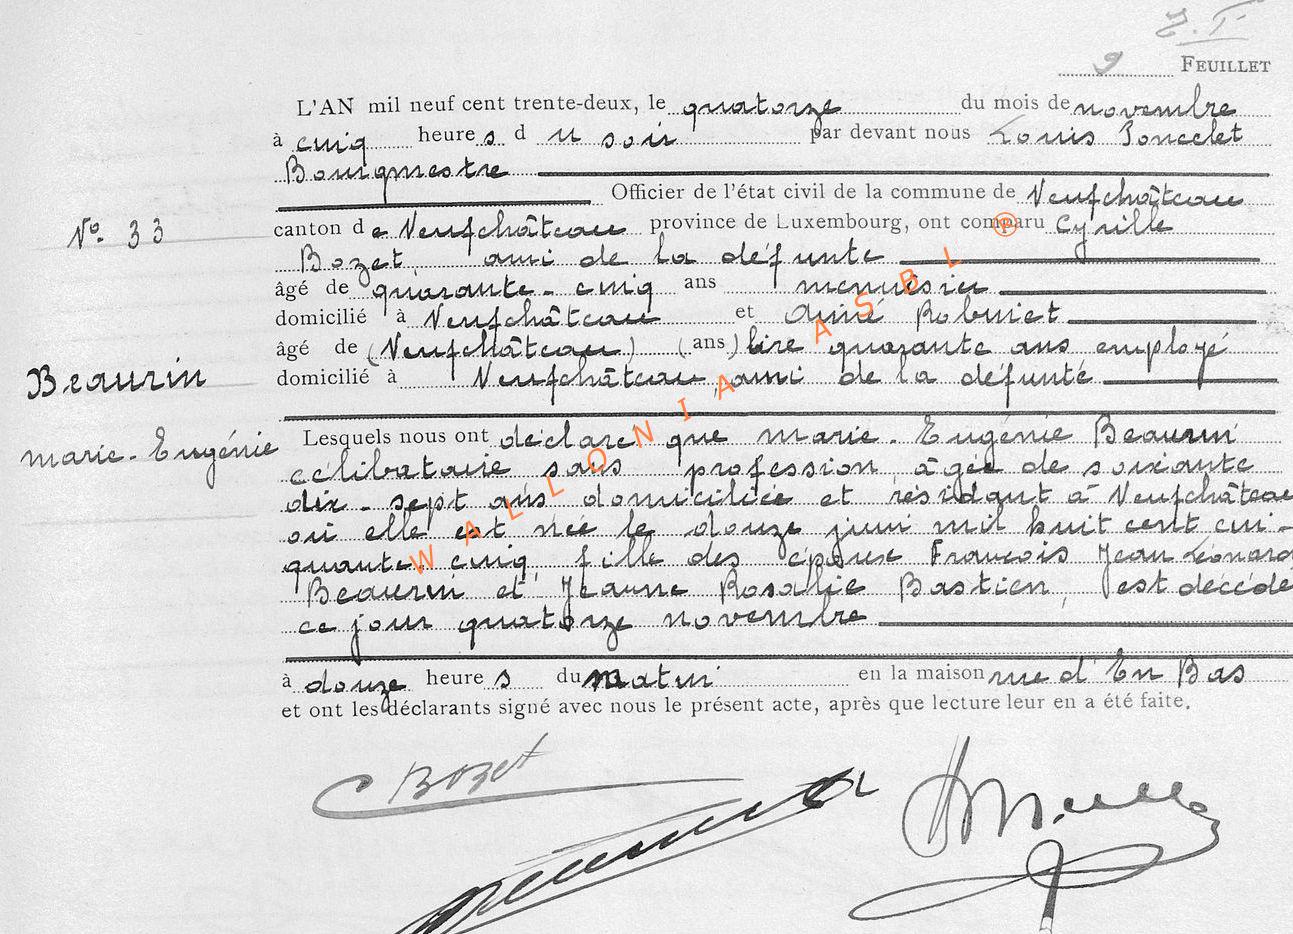 9 FEUILLET
L'AN mil neuf cent trente-deux, le quatorze du mois de novembre
à cinq heures du soir par devant nous Louis Poncelet
Bourgmestre
Officier de l'état civil de la commune de Neufchâteau
N° 33
canton de Neufchâteau province de Luxembourg, ont comparu Cyrille
Bozet, ami de la défunte
âgé de quarante-cinq ans menuisier
domicilié à Neufchâteau et Aimé Robinet
âgé de (Neufchâteau) (ans) lire quarante ans employé
Beaurin
domicilié à Neufchâteau, ami de la défunte
Marie-Eugénie
Lesquels nous ont déclaré que Marie-Eugénie Beaurin
célibataire sans profession âgée de soixante
dix-sept ans domiciliée et résidant à Neufchâteau
où elle est née le douze juin mil huit cent cin-
quante-cinq, fille des époux François Jean Léonard
Beaurin et Jeanne Rosalie Bastien, est décédé
ce jour quatorze novembre
à douze heures du matin en la maison rue d'En Bas
et ont les déclarants signé avec nous le présent acte, après que lecture leur en a été faite.
C Bozet
WALLONIA ASBL ®